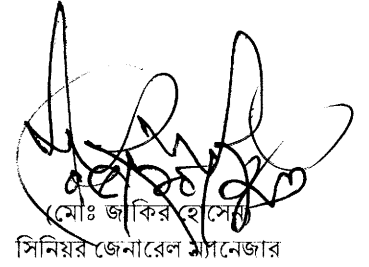 (মোঃ জাকির হোসেন)
সিনিয়র জেনারেল ম্যানেজার